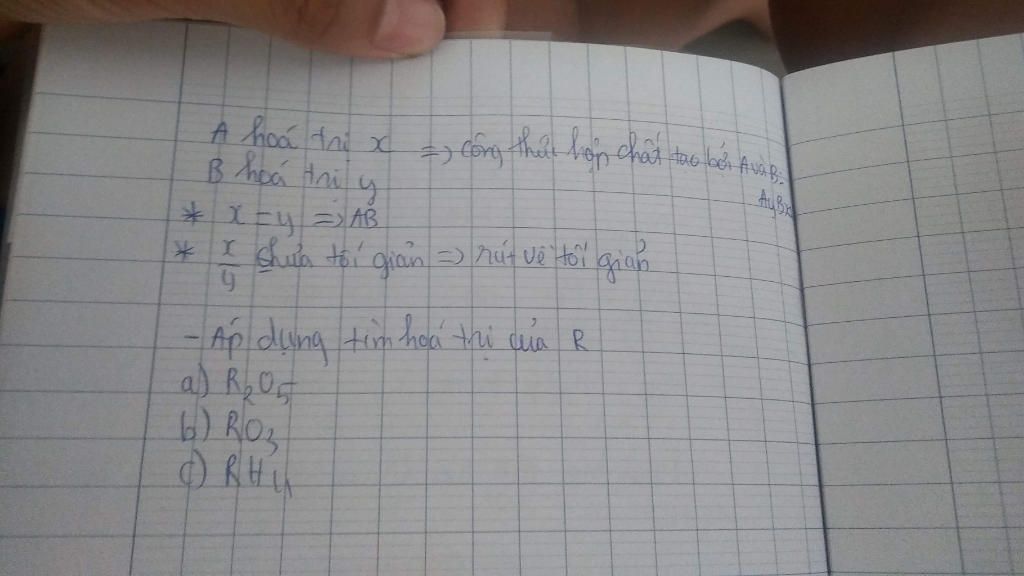 A hoá trị x => công thức hợp chất tạo bởi A và B:
B hoá trị y AyBx
* x = y => AB
* x/y chưa tối giản => rút về tối giản
- Áp dụng tìm hoá trị của R
a) R₂O₅
b) RO₃
c) RH₄